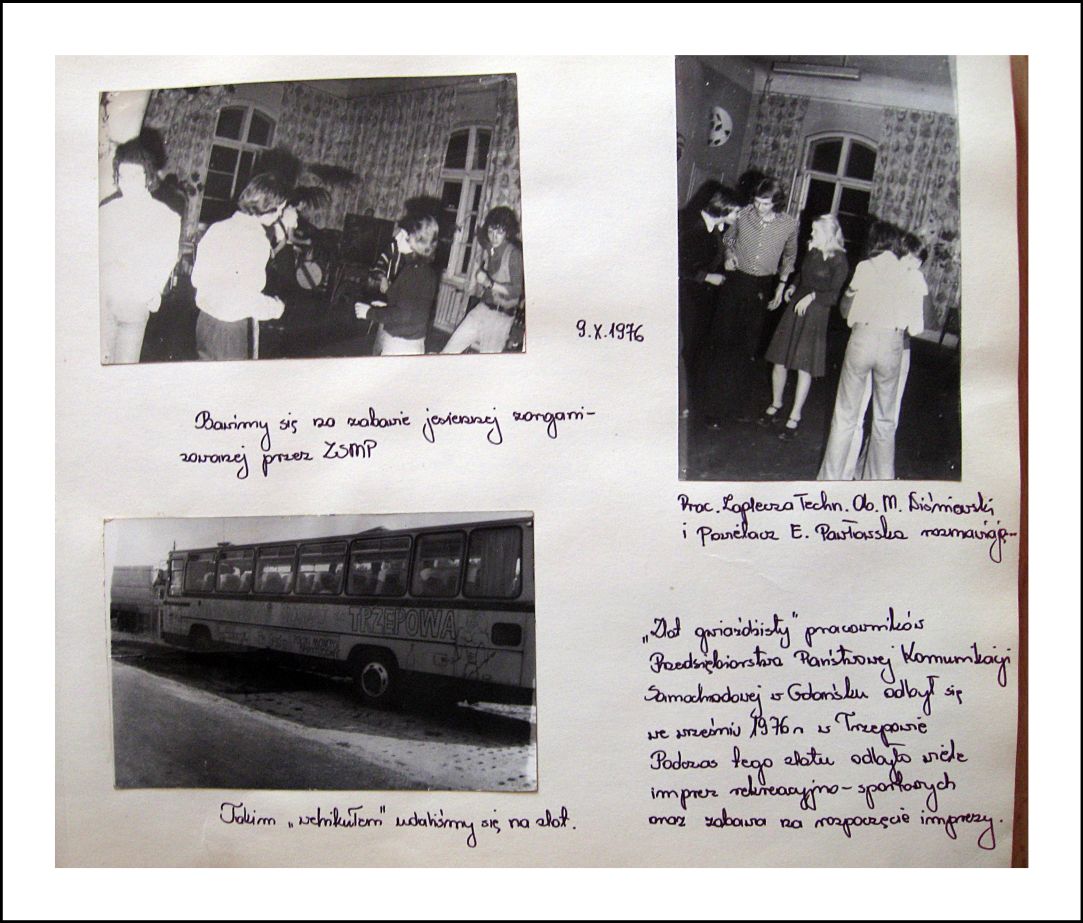 9.X.1976
Bawimy się na zabawie jesiennej zorgani-
zowanej przez ZSMP
Prac. Zaplecza Techn. Ob. M. Wiśniewski
i Powielacz E. Pawłowska rozmawiają--
TRZEPOWA
Takim „wehikułem" udaliśmy się na zlot.
„Zlot gwiaździsty" pracowników
Przedsiębiorstwa Państwowej Komunikacji
Samochodowej w Gdańsku odbył się
we wrześniu 1976 r w Trzepowie
Podczas tego zlotu odbyło wiele
imprez rekreacyjno-sportowych
oraz zabawa na rozpoczęcie imprezy.